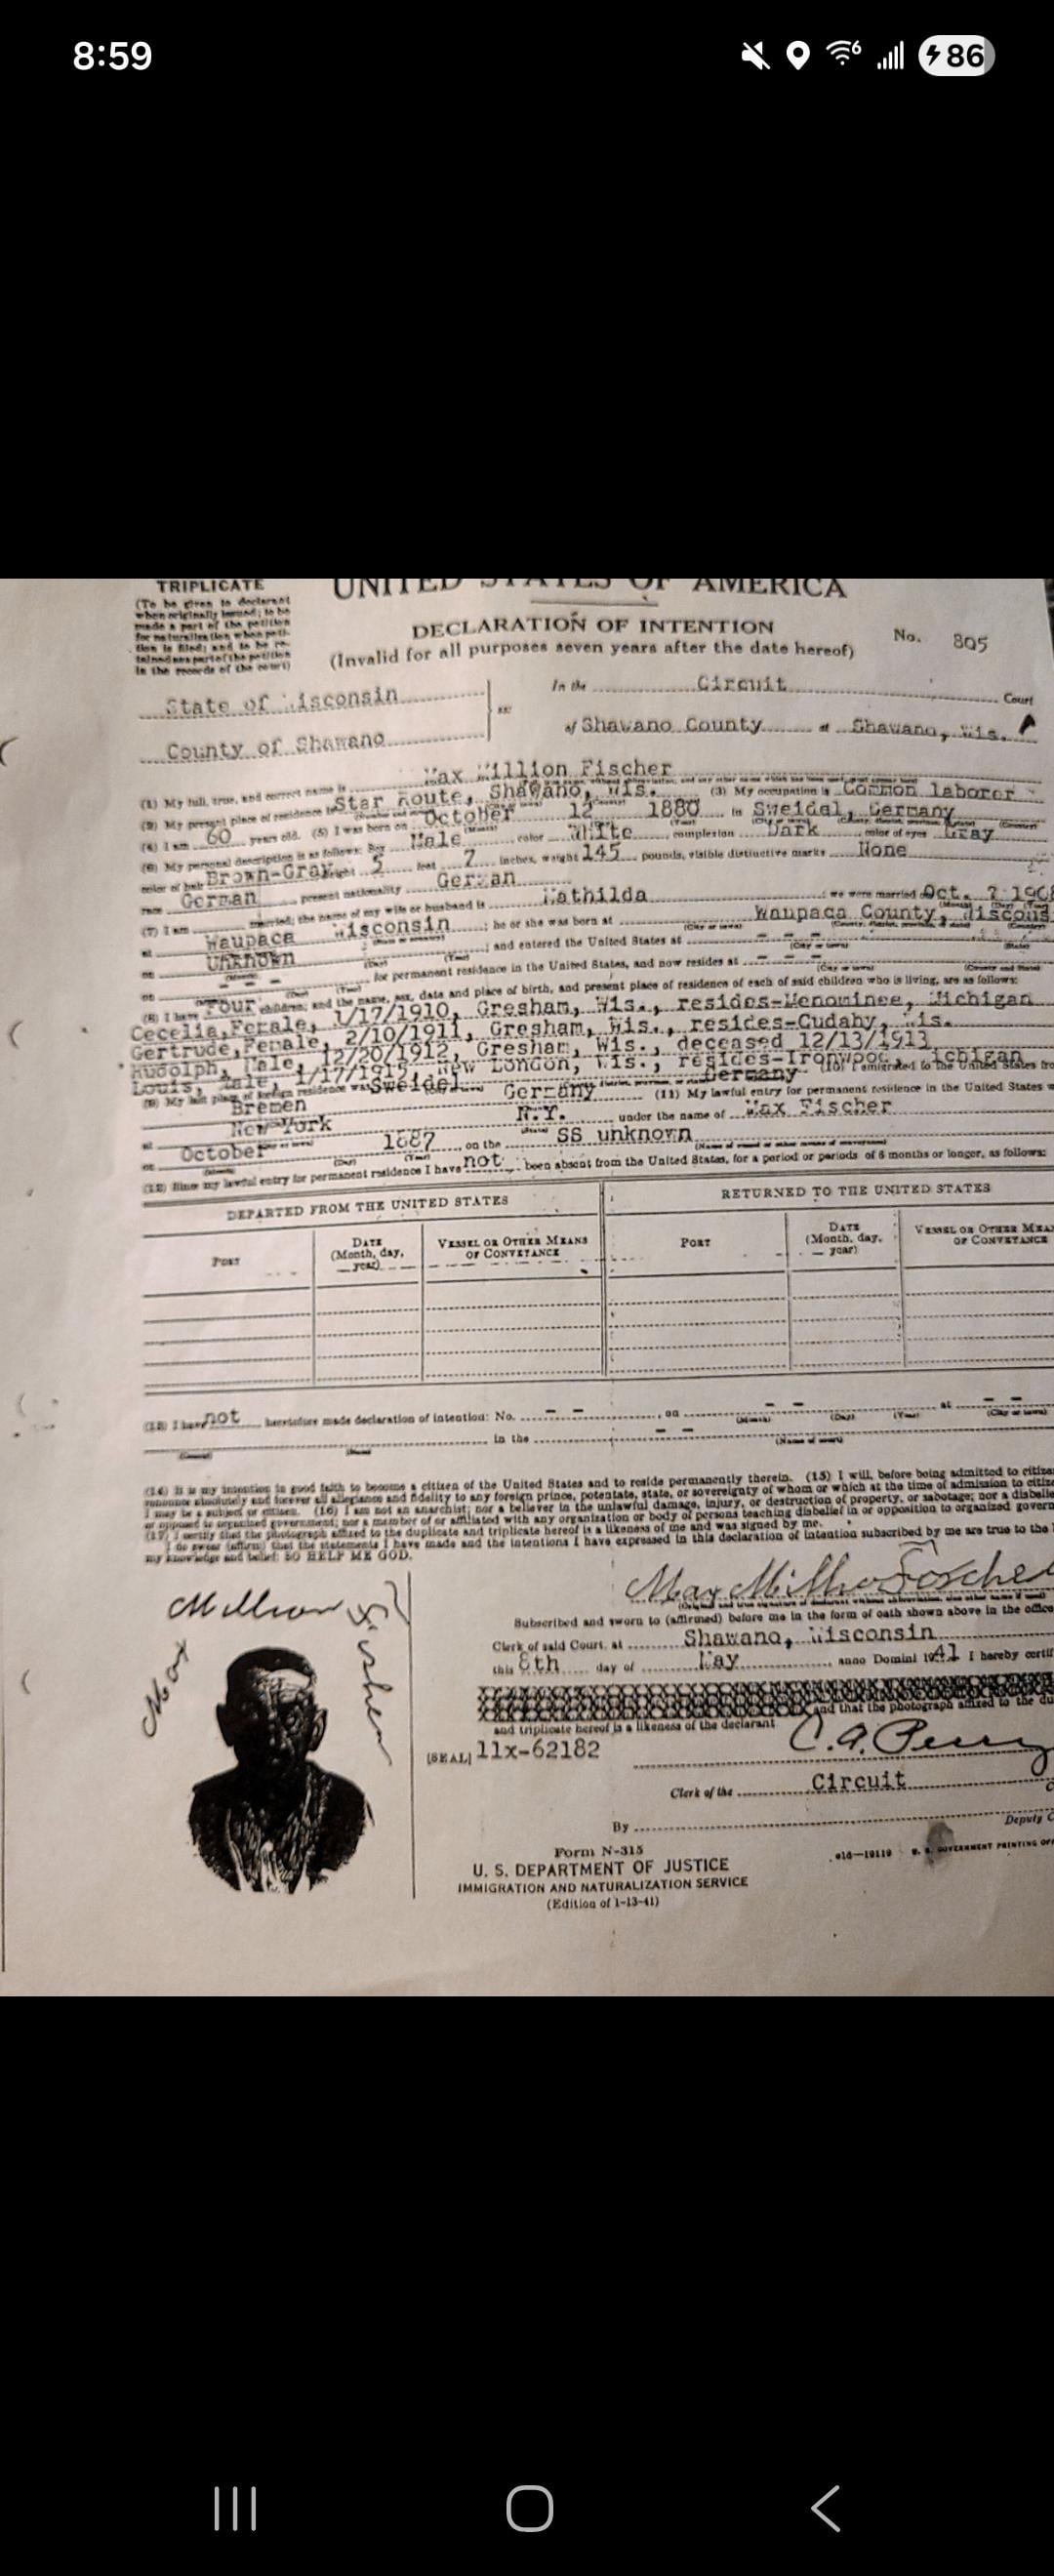 8:59
86
TRIPLICATE
(To be given to declarant
when originally issued; to be
made a part of the petition
for naturalization when peti-
tion is filed; and to be re-
tained as a part of the petition
in the records of the court)
UNITED STATES OF AMERICA
DECLARATION OF INTENTION
(Invalid for all purposes seven years after the date hereof)
No. 805
State of Wisconsin
County of Shawano
ss:
In the Circuit Court
of Shawano County at Shawano, Wis.
(1) My full, true, and correct name is Max Million Fischer
(2) My present place of residence is Star Route, Shawano, Wis. (3) My occupation is Common laborer
(4) I am 60 years old. (5) I was born on October 12 1880 in Sweidel, Germany
(6) My personal description is as follows: Sex Male color White complexion Dark color of eyes Gray
color of hair Brown-Gray height 5 feet 7 inches, weight 145 pounds, visible distinctive marks None
race German present nationality German
(7) I am married; the name of my wife or husband is Mathilda ; we were married on Oct. ? 190
at Waupaca Wisconsin ; he or she was born at Waupaca County, Wiscons
on Unknown ; and entered the United States at - - -
on - - - for permanent residence in the United States, and now resides at - - -
(8) I have Four children; and the name, sex, date and place of birth, and present place of residence of each of said children who is living, are as follows:
Cecelia, Female, 1/17/1910, Gresham, Wis., resides-Menominee, Michigan
Gertrude, Female, 2/10/1911, Gresham, Wis., resides-Cudahy, Wis.
Rudolph, Male, 12/20/1912, Gresham, Wis., deceased 12/13/1913
Louis, Male, 1/17/1915, New London, Wis., resides-Ironwood, Michigan
(9) My last place of foreign residence was Sweidel Germany Germany (10) I emigrated to the United States fro
Bremen Germany (11) My lawful entry for permanent residence in the United States w
at New York N.Y. under the name of Max Fischer
on October 1887 on the SS unknown
(12) Since my lawful entry for permanent residence I have not been absent from the United States, for a period or periods of 6 months or longer, as follows:
DEPARTED FROM THE UNITED STATES
RETURNED TO THE UNITED STATES
PORT
DATE
(Month, day,
year)
VESSEL OR OTHER MEANS
OF CONVEYANCE
PORT
DATE
(Month, day,
year)
VESSEL OR OTHER MEA
OF CONVEYANCE
(13) I have not heretofore made declaration of intention: No. - - , on - - at - -
in the - -
(14) It is my intention in good faith to become a citizen of the United States and to reside permanently therein. (15) I will, before being admitted to citize
renounce absolutely and forever all allegiance and fidelity to any foreign prince, potentate, state, or sovereignty of whom or which at the time of admission to citize
I may be a subject or citizen. (16) I am not an anarchist; nor a believer in the unlawful damage, injury, or destruction of property, or sabotage; nor a disbelie
or opposed to organized government; nor a member of or affiliated with any organization or body of persons teaching disbelief in or opposition to organized govern
(17) I certify that the photograph affixed to the duplicate and triplicate hereof is a likeness of me and was signed by me.
I do swear (affirm) that the statements I have made and the intentions I have expressed in this declaration of intention subscribed by me are true to the
my knowledge and belief: SO HELP ME GOD.
Max Million Fischer
Subscribed and sworn to (affirmed) before me in the form of oath shown above in the office
Clerk of said Court, at Shawano, Wisconsin
this 8th day of May anno Domini 1941 I hereby certif
and that the photograph affixed to the du
and triplicate hereof is a likeness of the declarant
Max Million Fischer
C. A. Perry
[SEAL] 11x-62182
Clerk of the Circuit
By Deputy C
Form N-315
U. S. DEPARTMENT OF JUSTICE
IMMIGRATION AND NATURALIZATION SERVICE
(Edition of 1-13-41)
U. S. GOVERNMENT PRINTING OF